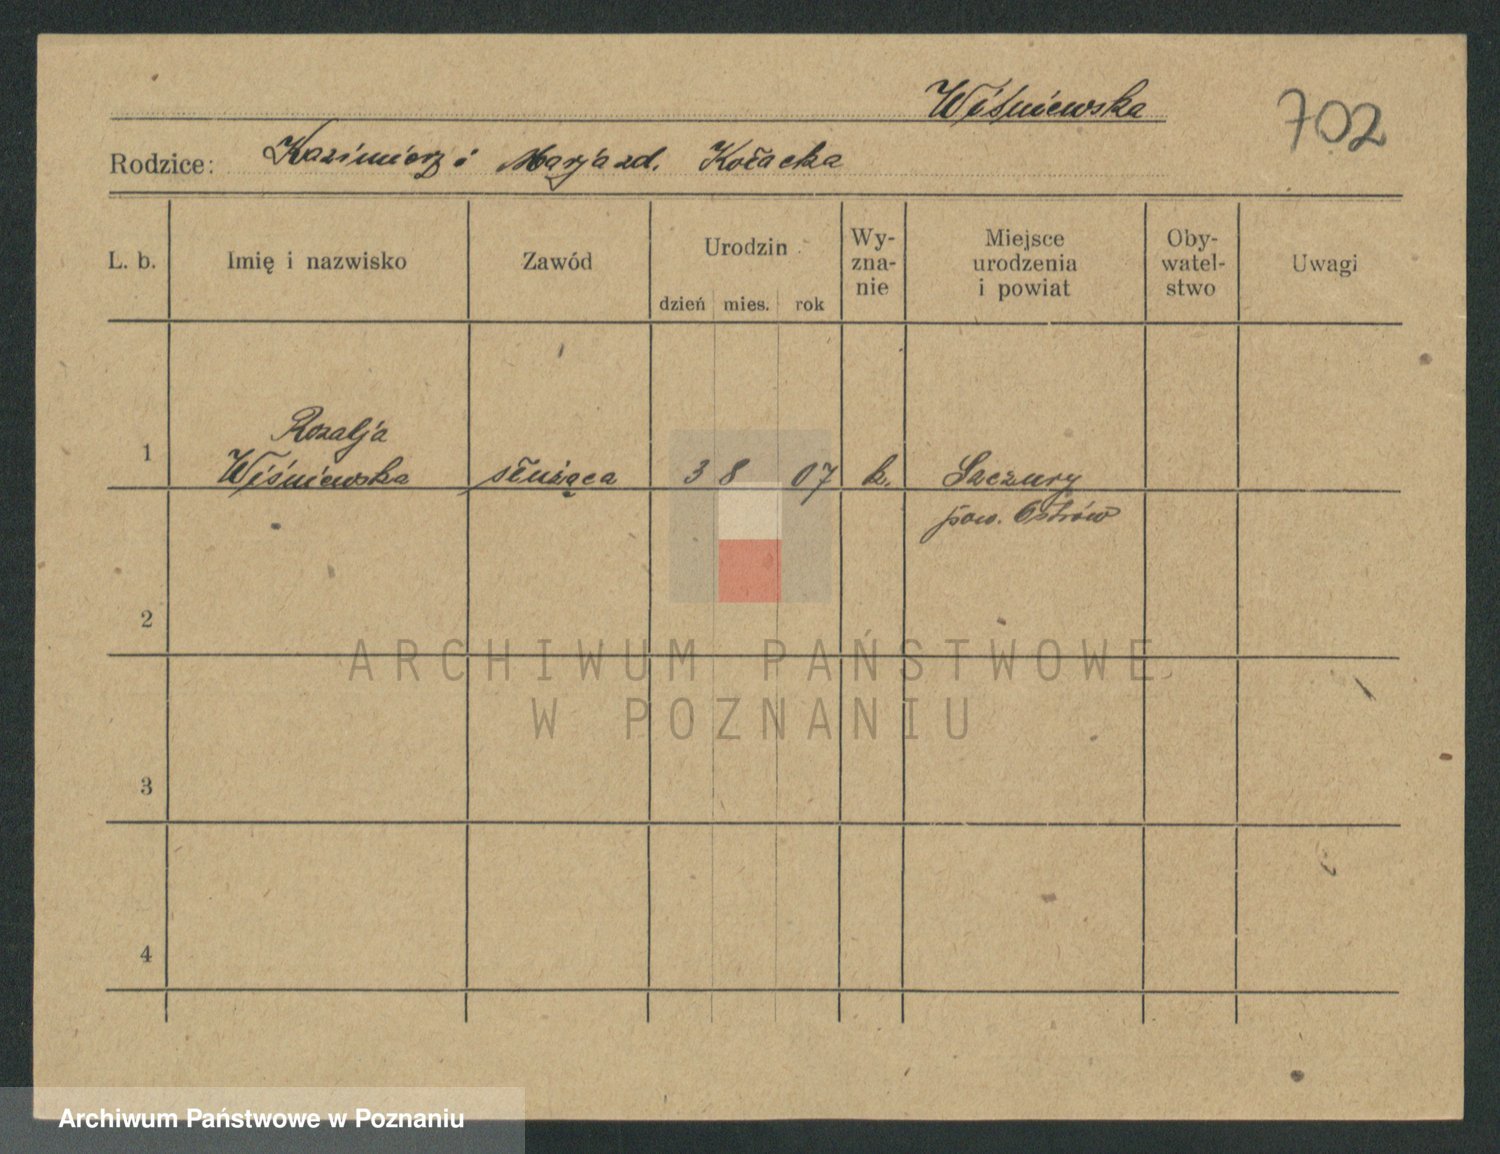 Wiśniewska
702
Rodzice: Kazimierz i Marja zd. Kołacka
L. b.
Imię i nazwisko
Zawód
Urodzin
dzień mies. rok
Wy-
zna-
nie
Miejsce
urodzenia
i powiat
Oby-
watel-
stwo
Uwagi
1
Rozalja
Wiśniewska
służąca
3 8 07
k.
Szczury
pow. Ostrów
2
3
4
ARCHIWUM PAŃSTWOWE
W POZNANIU
Archiwum Państwowe w Poznaniu